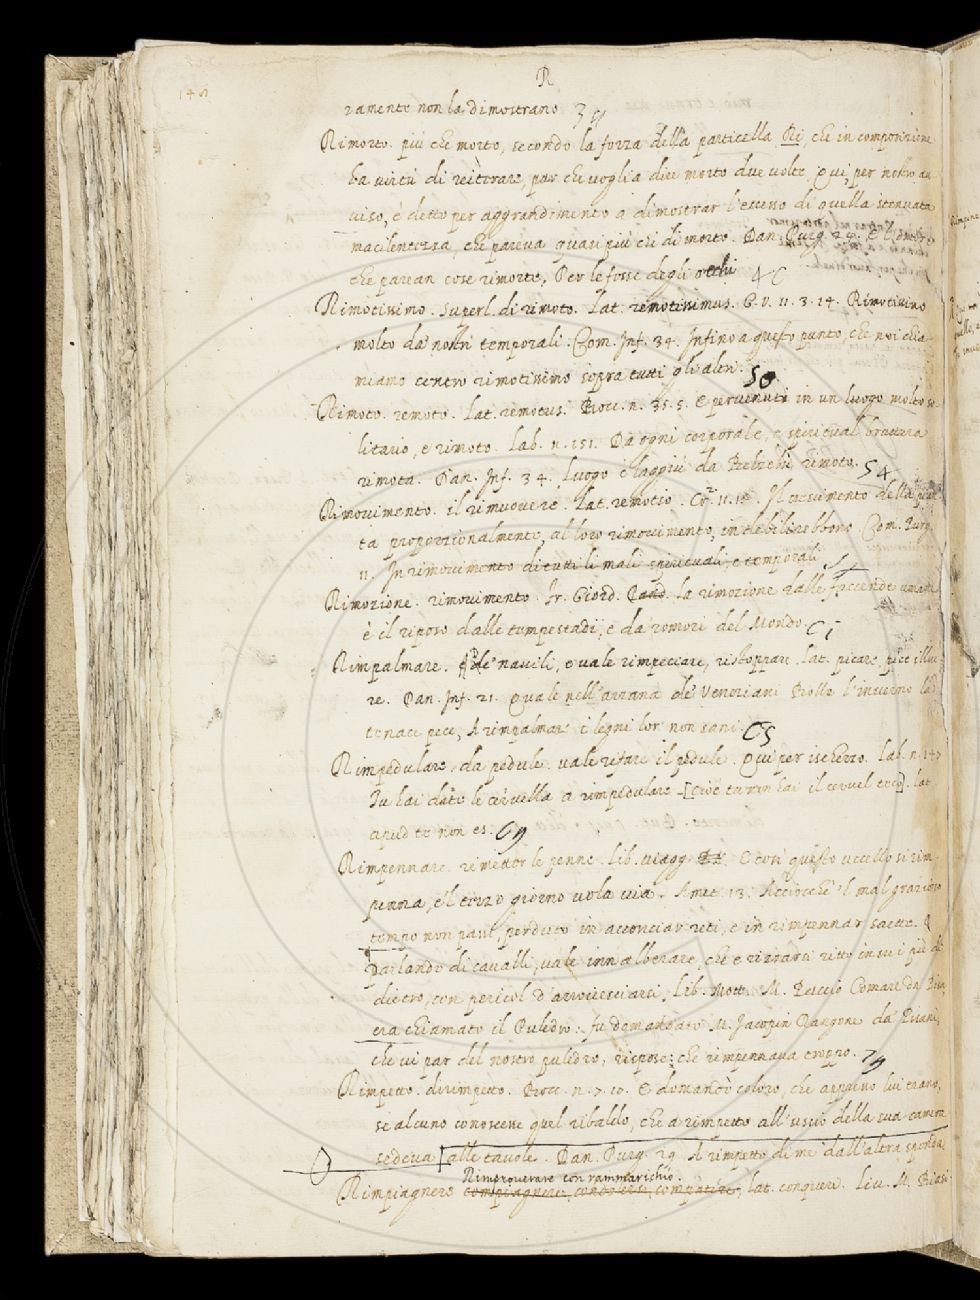 R
ramento non la dimostrano
Rimorto. più che morto, secondo la forza della particella Ri, che in composizione
ha virtù di reiterare, par che voglia dire morto due volte, qui, per nostro au
viso, è detto per aggrandimento a dimostrar l'eccesso di quella stenuata
macilentezza, che pareva quasi più ch di morto. Dan. Purg. 24. E l'ombre,
che parean cose rimorte, Per le fosse degli occhi
Rimotissimo. Superl. di rimoto. Lat. remotissimus. G. V. 11. 3. 14. Rimotissimo
molto da' nostri temporali. Com. Inf. 34. Infino a questo punto, che noi chia-
miamo centro rimotissimo sopra tutti gli altri. 50
Rimoto. remoto. Lat. remotus. Bocc. n. 35. 5. E pervenuti in un luogo molto so-
litario, e rimoto. Lab. n. 151. Da ogni corporale, e spiritual bruttura
rimota. Dan. Inf. 34. Luogo è laggiù da Belzebù rimoto. 54
Rimovimento. il rimuovere. Lat. remotio. Il crescimento della
ta proporzionalmente, al loro rimovimento, indebilirebbono. Com. Purg.
11. In rimovimento di tutti li mali spirituali, e temporali
Rimozione. rimovimento. Fr. Giord. Pand. La rimozione dalle faccende umane
è il riposo dalle tempestadi, e da romori del Mondo
Rimpalmare. de' navili, e vale rimpeciare, ristoppare. Lat. picare, pice illine-
re. Dan. Inf. 21. Quale nell'arzanà de' Veneziani Bolle l'inverno la
tenace pece, A rimpalmar i legni lor non sani.
Rimpedulare, da pedule. vale rifare il pedule. Qui per ischerzo. Lab. n. 147
Tu hai dato le cervella a rimpedulare [cioè tu non hai il cervel teco]. Lat.
apud te non es.
Rimpennare. remetter le penne. Lib. viagg. E così questo uccello si rim-
penna, e 'l terzo giorno vola via. Amet. 13. Acciocchè 'l mal grazioso
tempo non paia, perduto in acconciar reti, e in rimpennar saette. §
Parlando di cavalli, vale inn alberare, che è rizzarsi ritto in su i piè di
dietro, con pericol d'arrovesciarsi, Lib. Mott. M. Da Pisa,
era chiamato il Puledro: fu domandato M. Jacopin Rangone da' Pisani,
che vi par del nostro puledro, rispose: che rimpennava troppo.
Rimpetto. dirimpetto. Bocc. n. 7. 10. E domandò coloro, che appresso lui erano,
se alcuno conoscesse quel ribaldo, che a rimpetto all'uscio della sua camera
sedeva [alle tavole. Dan. Purg. 29. A rimpetto di me dall'altra sponda.
Rimproverare con rammarichio.
Rimpiagnere compiagnere, condolersi, compatire, lat. conqueri. Liv. M. Biasi